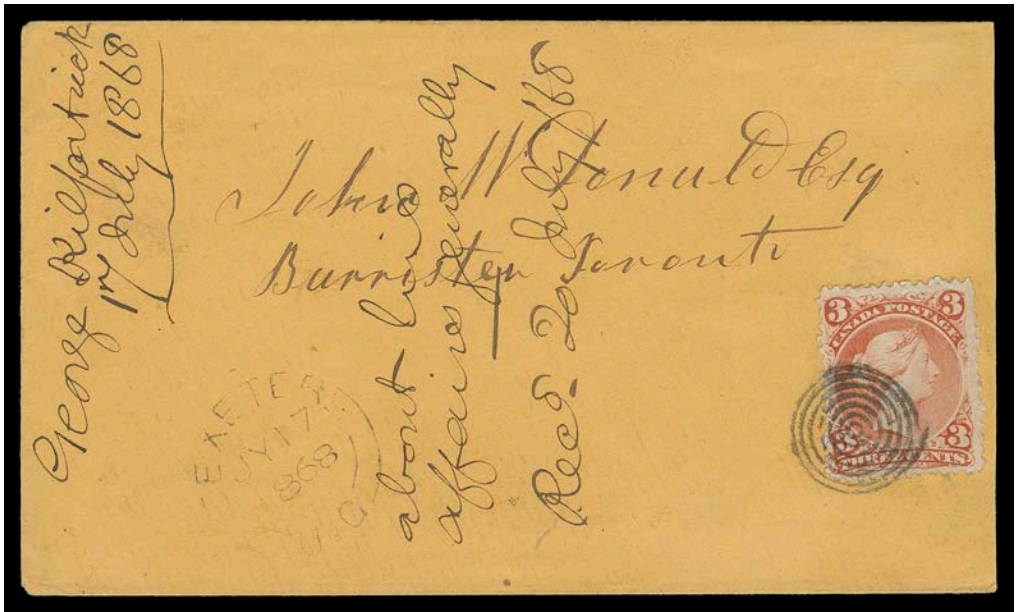 George Kilfortrick
17 July 1868
John McDonald Esq
Barrister Toronto
about land
affairs generally
Recd. 20 July /68
EXETER
JY 17
1868
3 3
CANADA POSTAGE
3 3
THREE CENTS